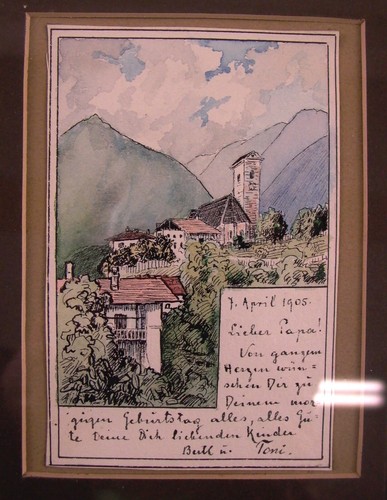 7. April 1905.
Lieber Papa!
Von ganzem
Herzen wün-
schen Dir zu
Deinem mor-
gigen Geburtstag alles, alles Gu-
te Deine Dich liebenden Kinder
Bertl u. Toni.